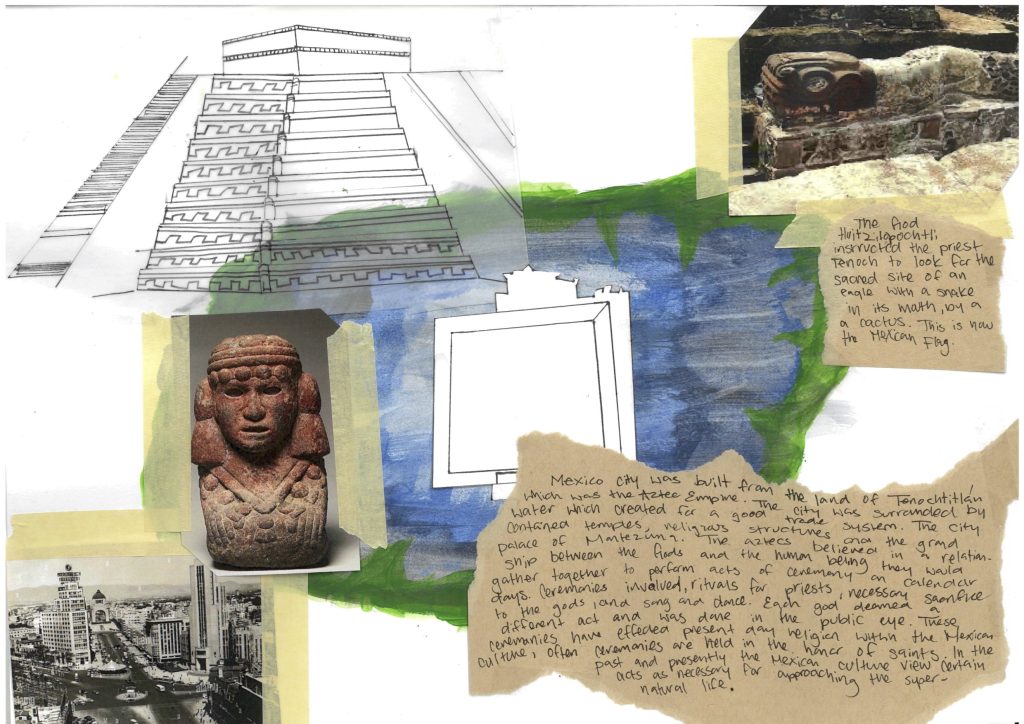 The God
Huitzilopochtli
instructed the priest
Tenoch to look for the
sacred site of an
eagle with a snake
in its math, by a
a cactus. This is now
the Mexican Flag.
Mexico City was built from the land of Tenochtitlán
which was the Aztec Empire. The city was surrounded by
water which created for a good trade system. The city
contained temples, religious structures and the grand
palace of Montezuma. The aztecs believed in a relation-
ship between the Gods and the human being they would
gather together to perform acts of ceremony on calendar
days. Ceremonies involved, rituals for priests, necessary sacrifice
to the gods, and song and dance. Each god deamed a
different act and was done in the public eye. These
ceremonies have effected present day religion within the Mexican
culture, often ceremonies are held in the honor of saints. In the
past and presently the Mexican culture view certain
acts as necessary for approaching the super-
natural life.